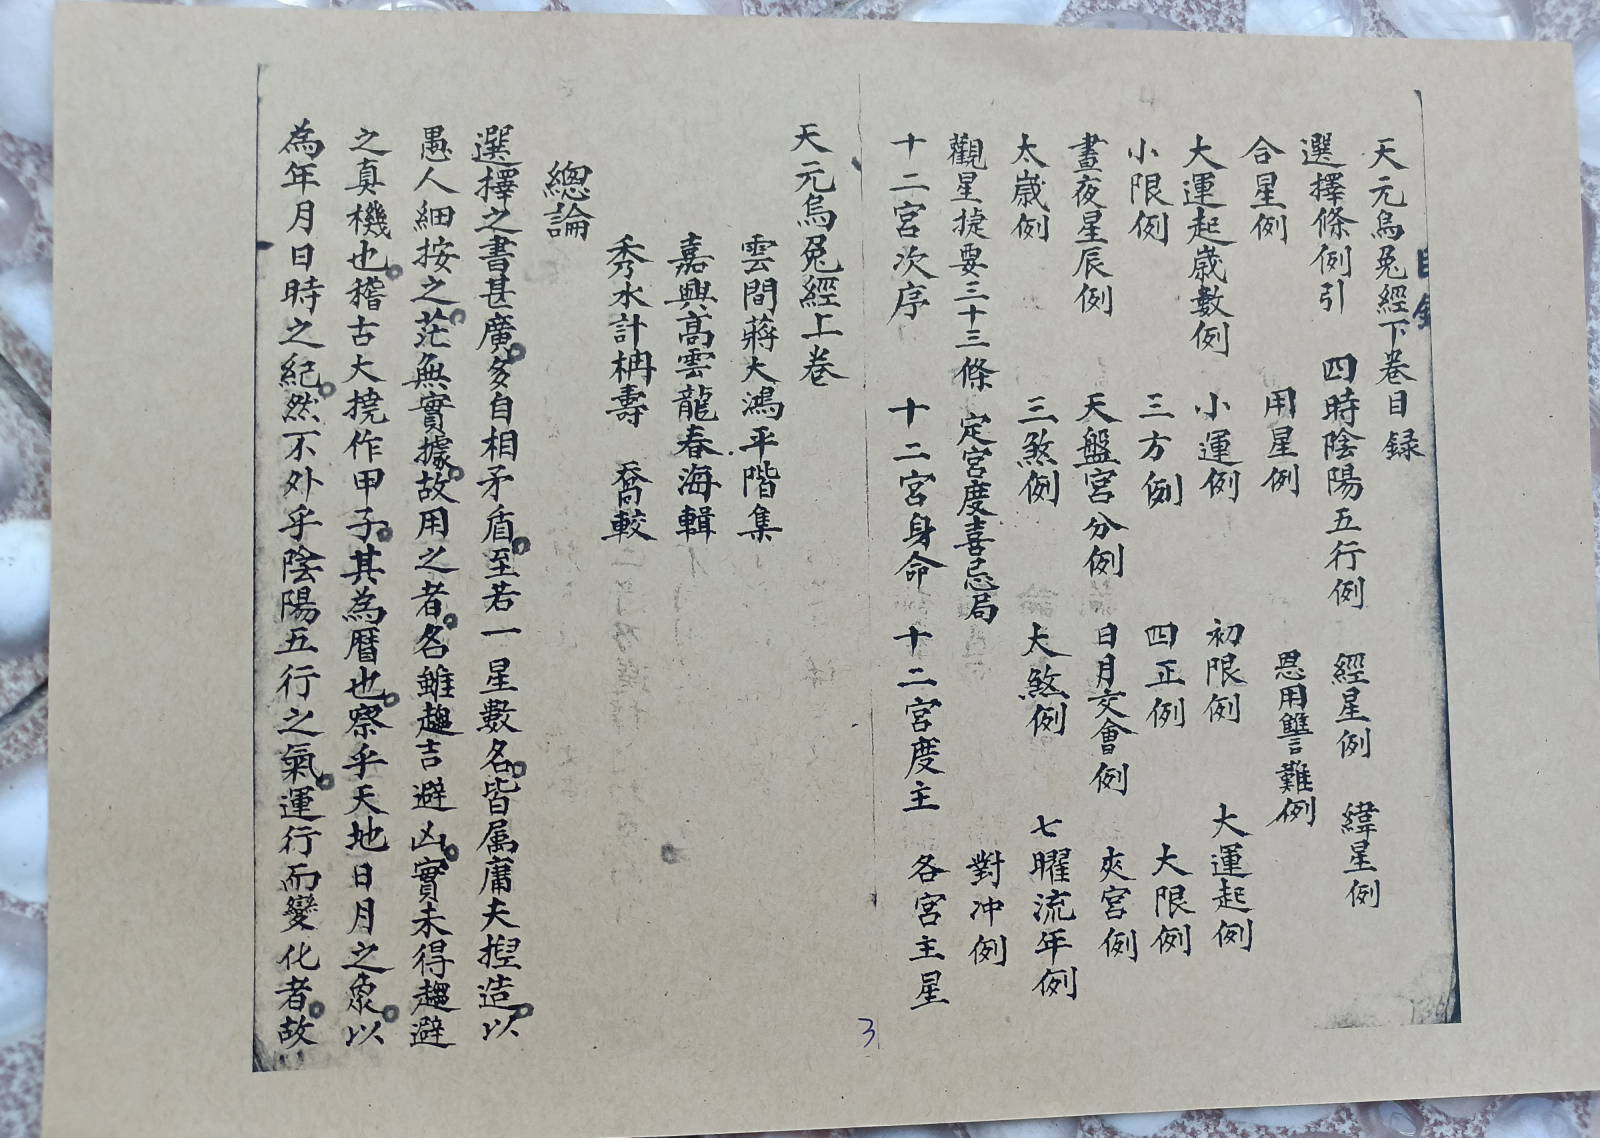 天元烏兔經下卷目録
選擇條例引　四時陰陽五行例　經星例　緯星例
合星例　用星例　恩用讐難例
大運起歳數例　小運例　初限例　大運起例
小限例　三方例　四正例　大限例
晝夜星辰例　天盤宮分例　日月交會例　夾宮例
太歳例　三煞例　大煞例　七曜流年例
觀星捷要三十三條　定宮度喜忌局　對冲例
十二宮次序　十二宮身命　十二宮度主　各宮主星
目録
天元烏兔經上卷
雲間蔣大鴻平階集
嘉興高雲龍春海輯
秀水計枬壽喬較
總論
選擇之書甚廣。多自相矛盾。至若一星數名。皆属庸夫揑造。以
愚人細按之。茫無實據。故用之者。名雖趨吉避凶。實未得趨避
之真機也。稽古大撓作甲子。其為曆也。察乎天地日月之象。以
為年月日時之紀。然不外乎陰陽五行之氣。運行而變化者。故
3